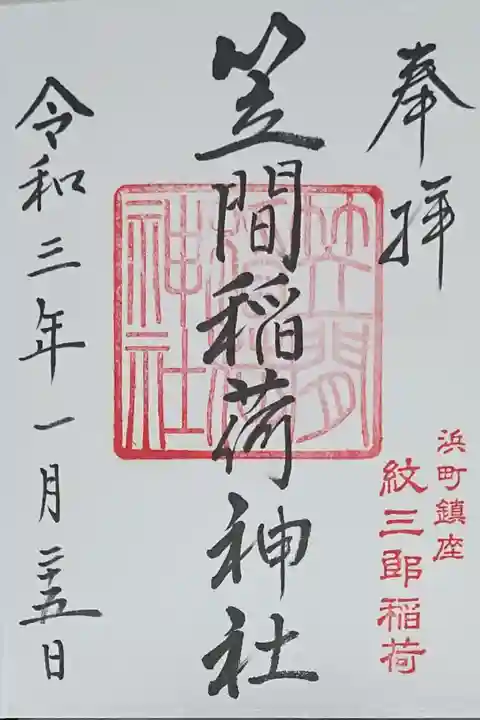 奉拝
浜町鎮座
紋三郎稲荷
笠間稲荷神社
笠間
稲荷
神社
令和三年一月二十五日